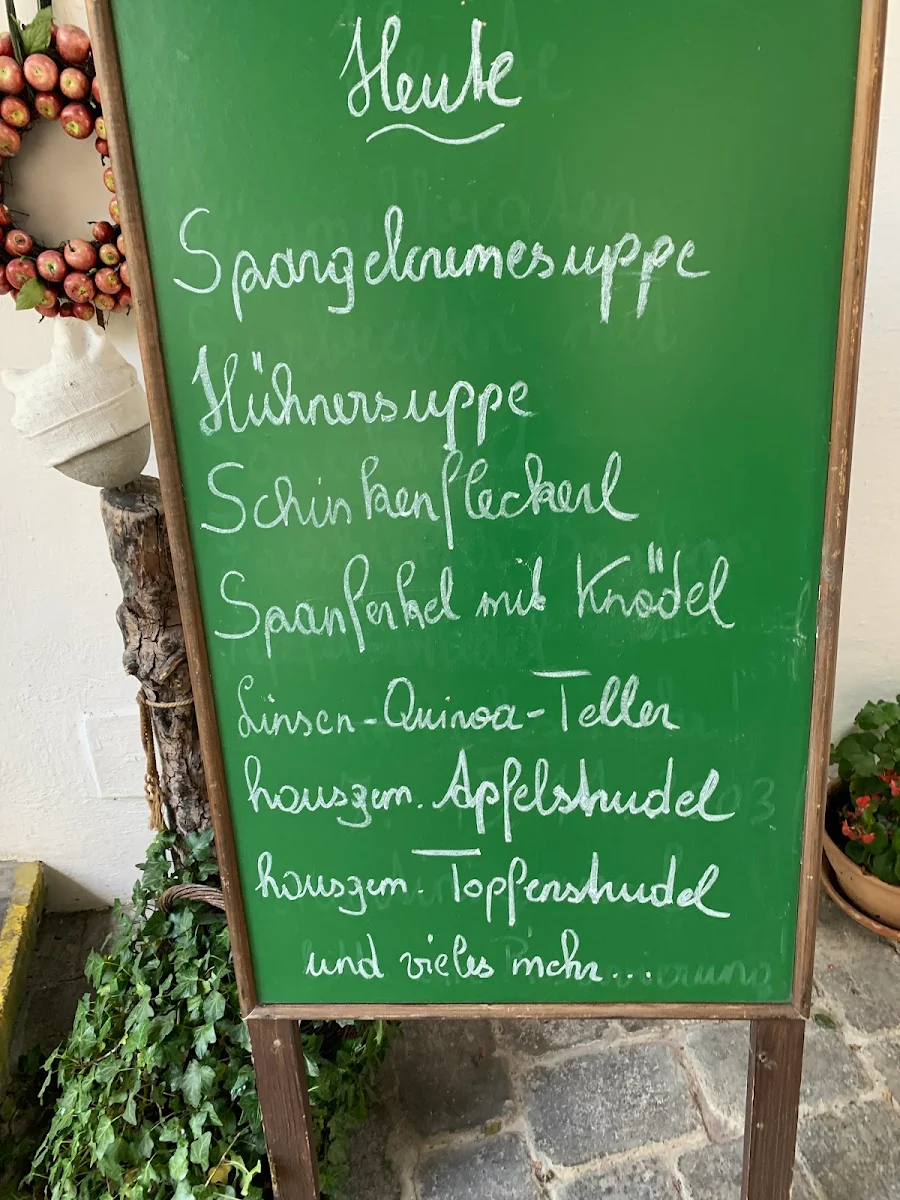 Heute
Spargelcremesuppe
Hühnersuppe
Schinkenfleckerl
Spanferkel mit Knödel
Linsen-Quinoa-Teller
hausgem. Apfelstrudel
hausgem. Topfenstrudel
und vieles mehr...